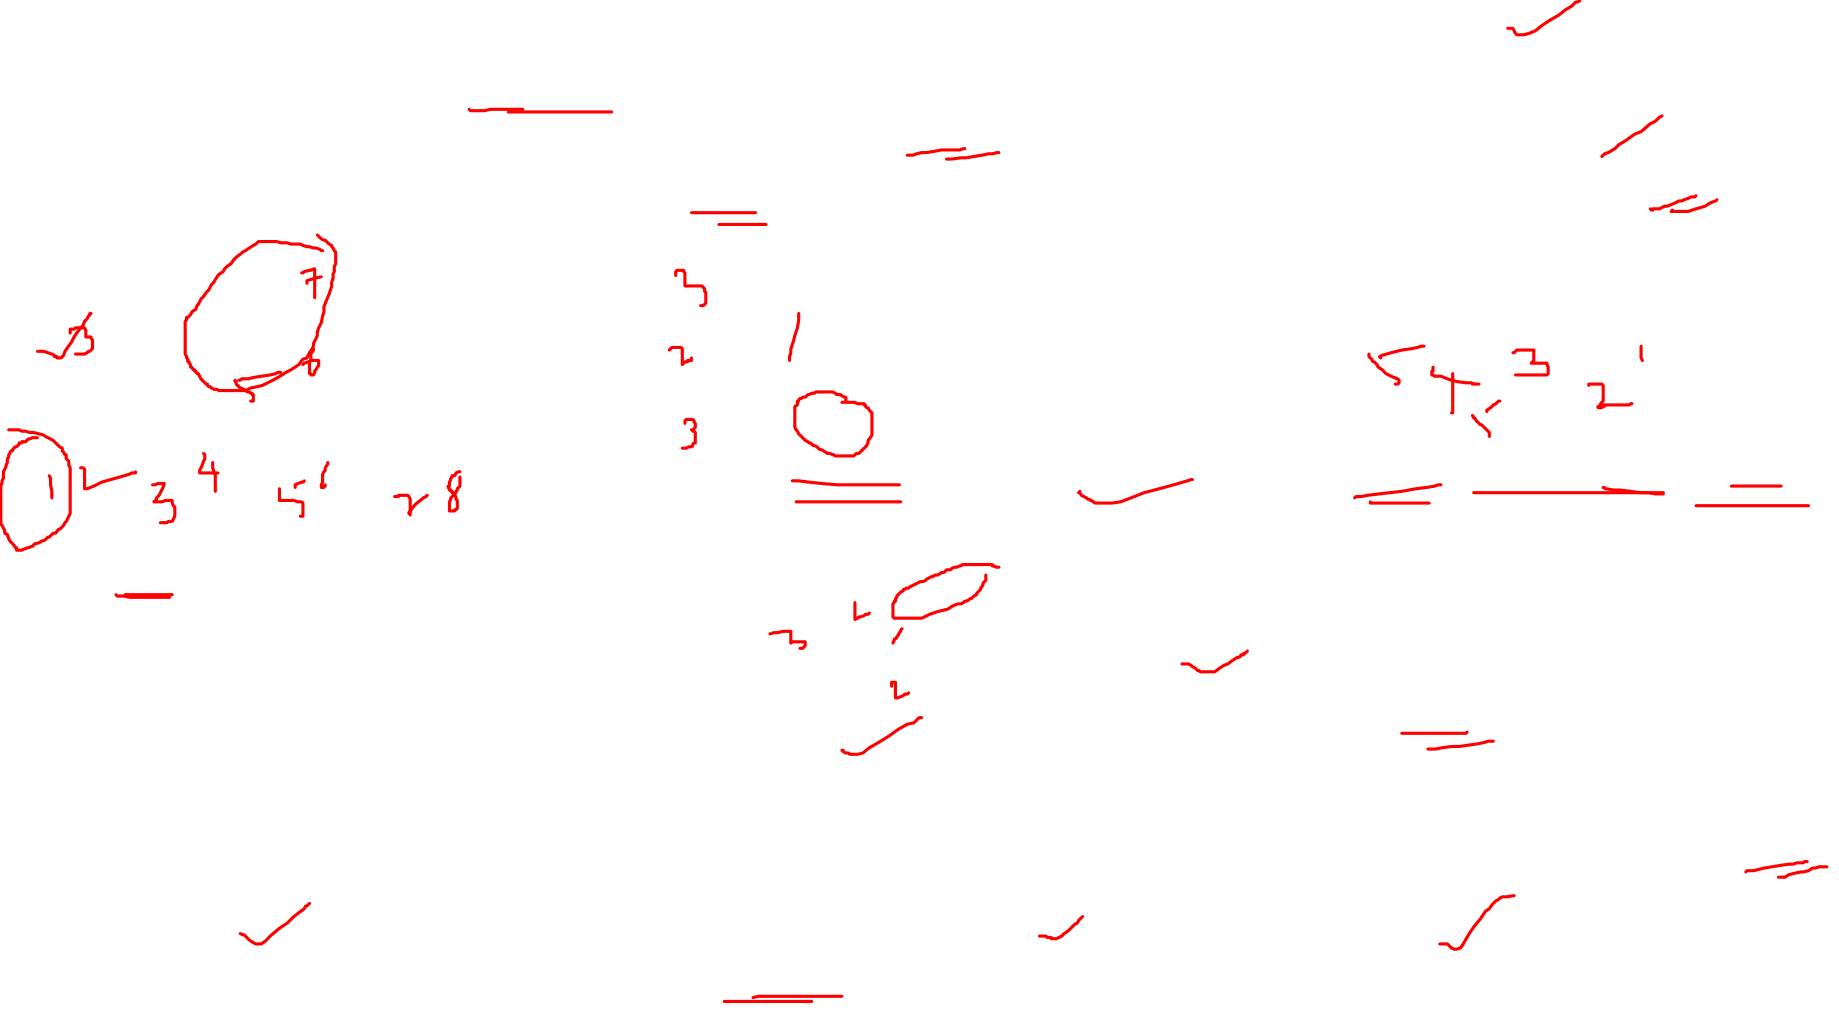 7
3
8
5
1 2 3 4 5 6 7 8
3
2 1
3
5 4 3 2 1
3 2 1
2